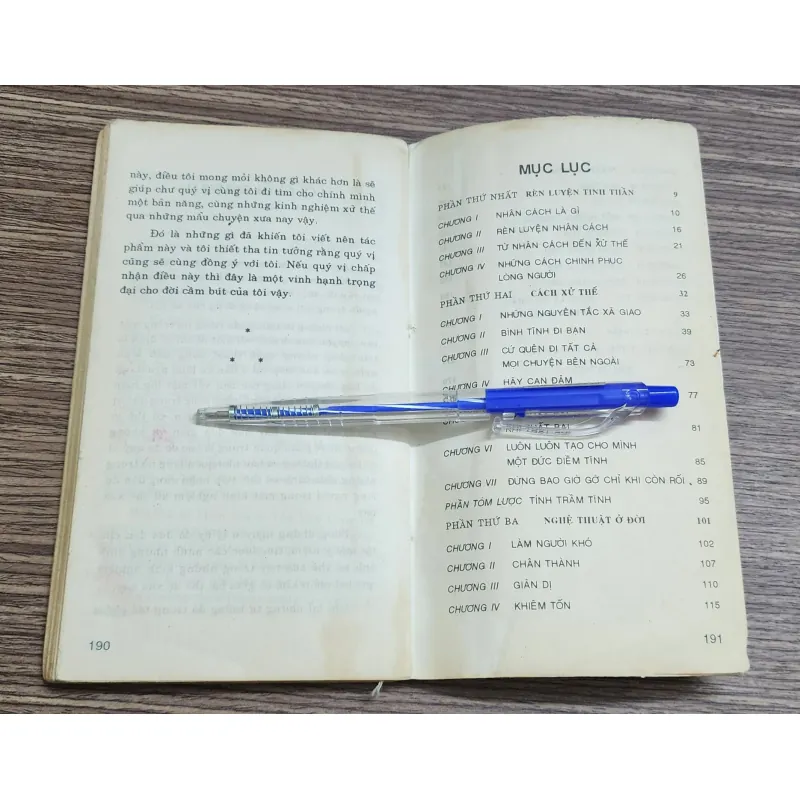 này, điều tôi mong mỏi không gì khác hơn là sẽ
giúp chư quý vị cùng tôi đi tìm cho chính mình
một bản năng, cùng những kinh nghiệm xử thế
qua những mẩu chuyện xưa nay vậy.
Đó là những gì đã khiến tôi viết nên tác
phẩm này và tôi thiết tha tin tưởng rằng quý vị
cũng sẽ cùng đồng ý với tôi. Nếu quý vị chấp
nhận điều này thì đây là một vinh hạnh trọng
đại cho đời cầm bút của tôi vậy.
*
* *
190
MỤC LỤC
PHẦN THỨ NHẤT RÈN LUYỆN TINH THẦN 9
CHƯƠNG I NHÂN CÁCH LÀ GÌ 10
CHƯƠNG II RÈN LUYỆN NHÂN CÁCH 16
CHƯƠNG III TỪ NHÂN CÁCH ĐẾN XỬ THẾ 21
CHƯƠNG IV NHỮNG CÁCH CHINH PHỤC
LÒNG NGƯỜI 26
PHẦN THỨ HAI CÁCH XỬ THẾ 32
CHƯƠNG I NHỮNG NGUYÊN TẮC XÃ GIAO 33
CHƯƠNG II BÌNH TĨNH ĐI BẠN 39
CHƯƠNG III CỨ QUÊN ĐI TẤT CẢ
MỌI CHUYỆN BÊN NGOÀI 73
CHƯƠNG IV HÃY CAN ĐẢM 77
81
CHƯƠNG VI LUÔN LUÔN TẠO CHO MÌNH
MỘT ĐỨC ĐIỀM TĨNH 85
CHƯƠNG VII ĐỪNG BAO GIỜ GỠ CHỈ KHI CÒN RỐI 89
PHẦN TÓM LƯỢC TÍNH TRẦM TĨNH 95
PHẦN THỨ BA NGHỆ THUẬT Ở ĐỜI 101
CHƯƠNG I LÀM NGƯỜI KHÓ 102
CHƯƠNG II CHÂN THÀNH 107
CHƯƠNG III GIẢN DỊ 110
CHƯƠNG IV KHIÊM TỐN 115
191